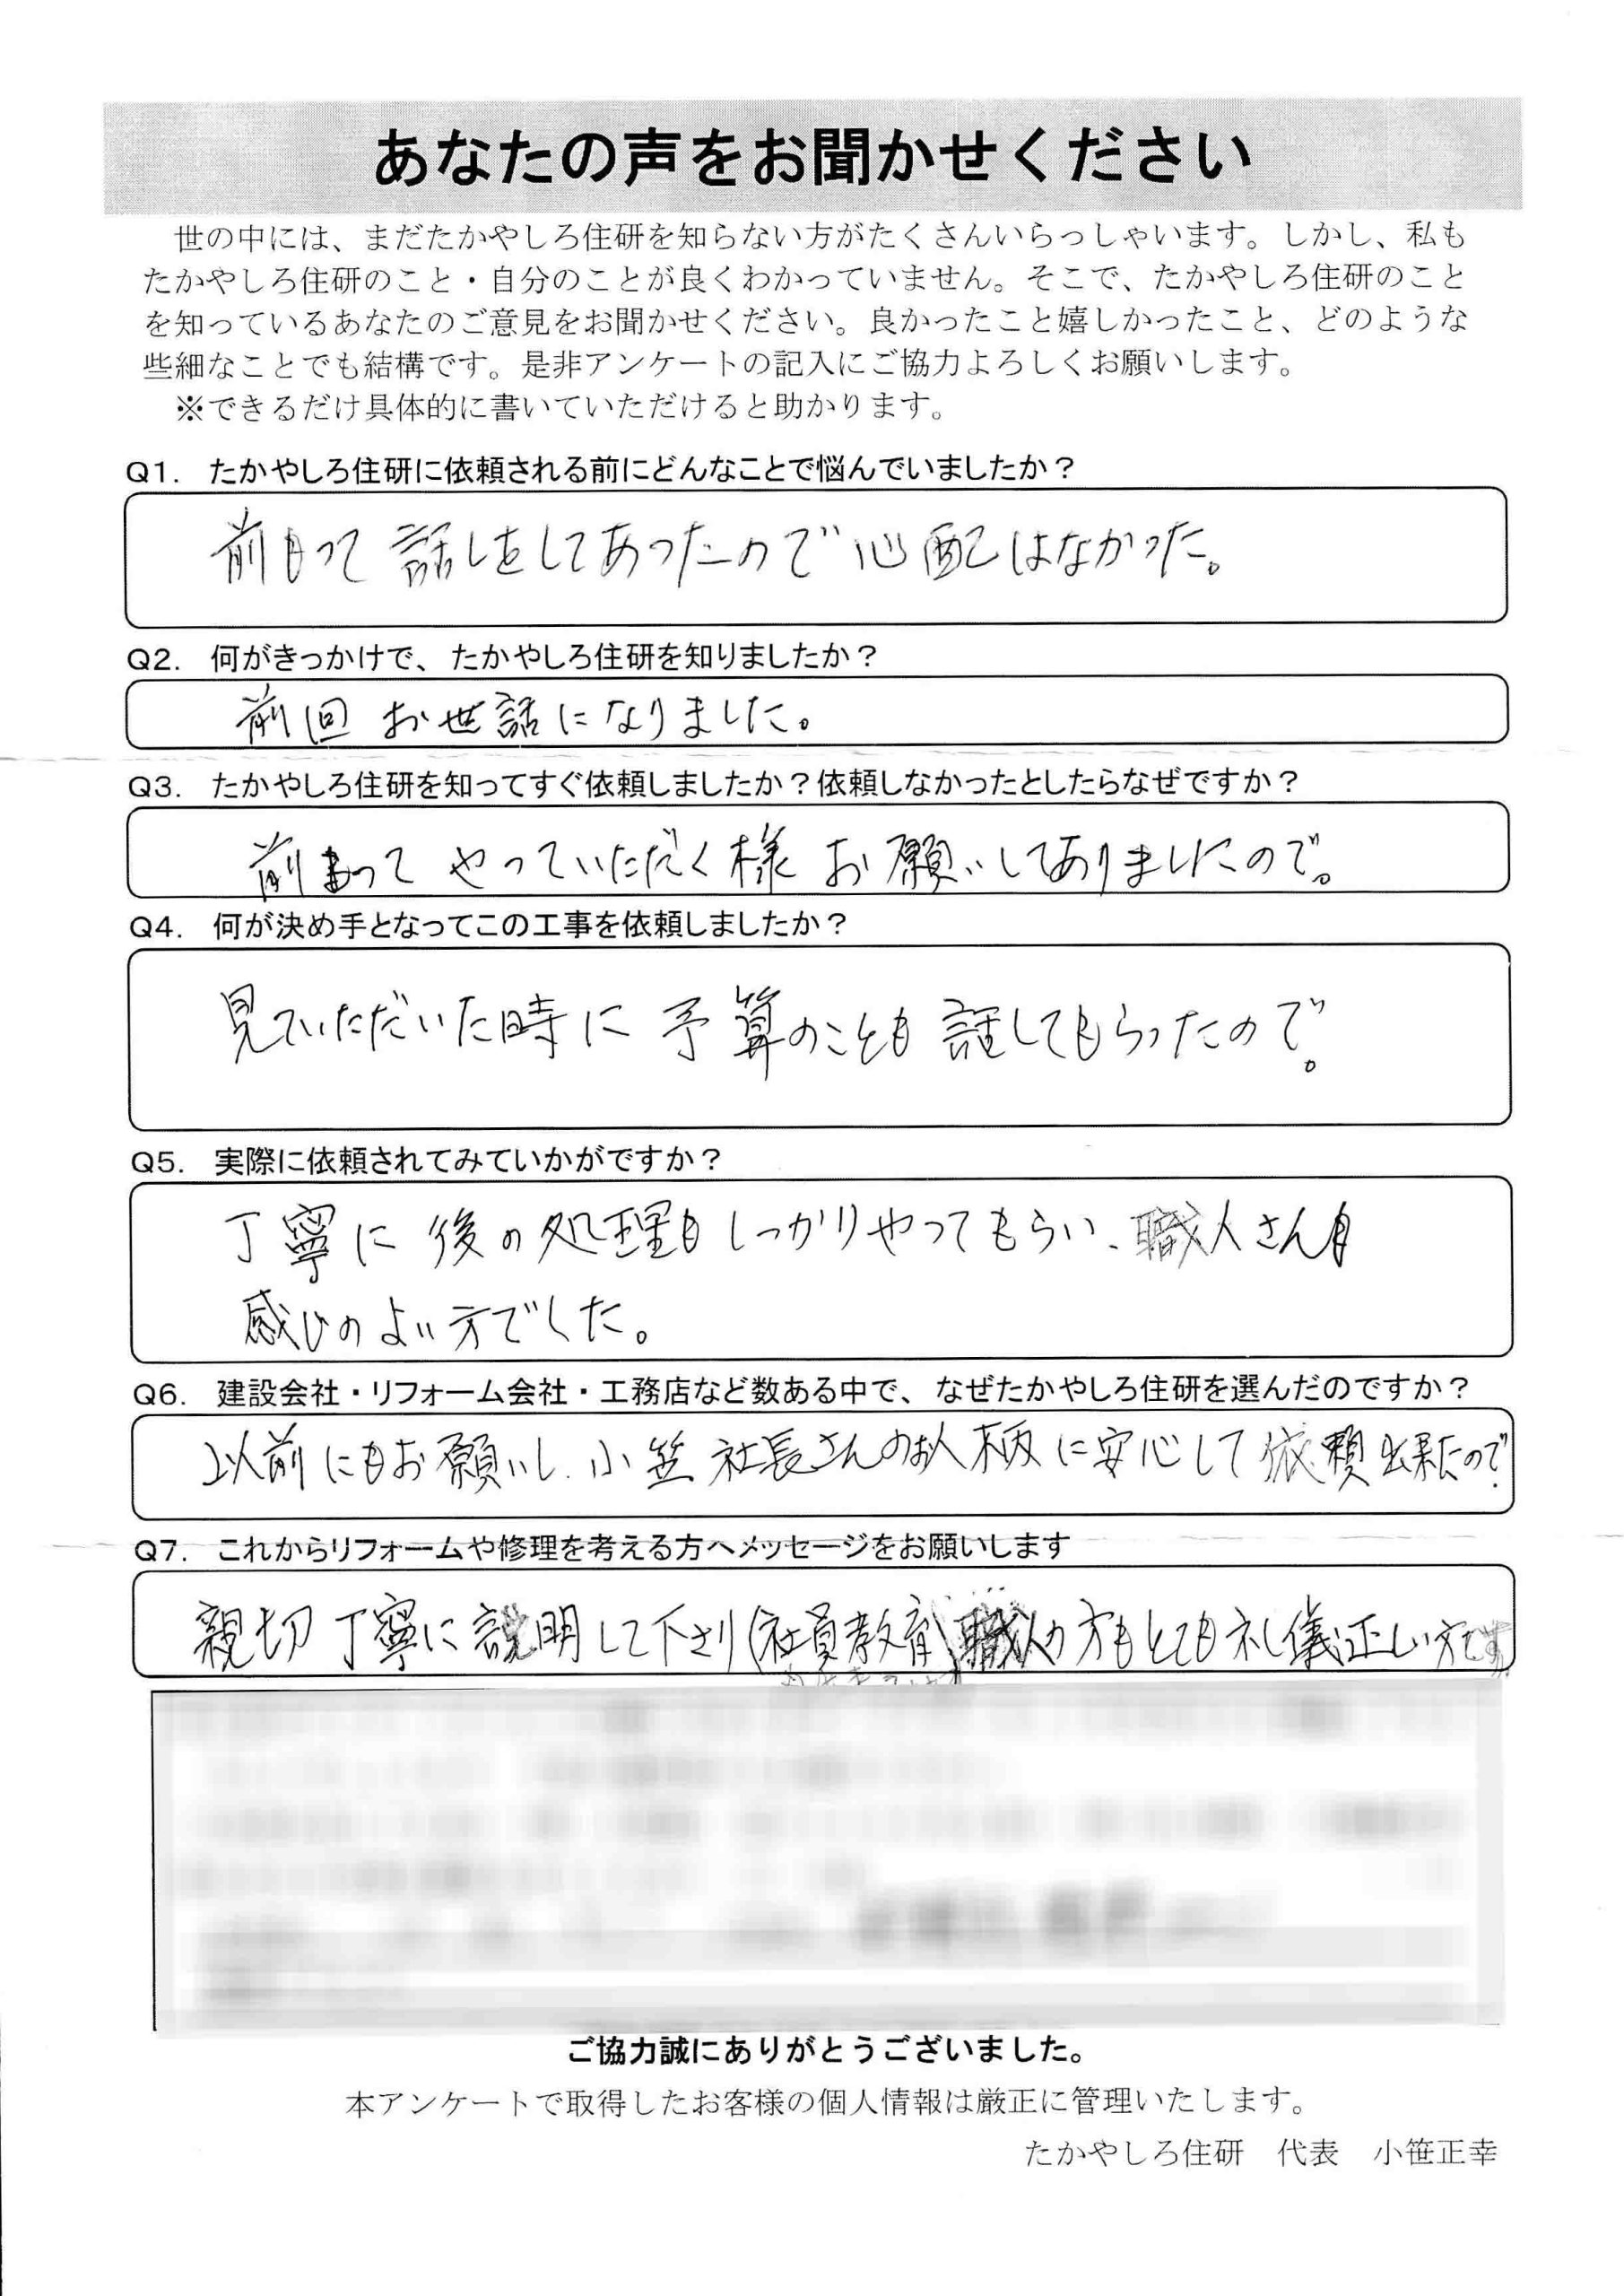 あなたの声をお聞かせください
世の中には、まだたかやしろ住研を知らない方がたくさんいらっしゃいます。しかし、私も
たかやしろ住研のこと・自分のことが良くわかっていません。そこで、たかやしろ住研のこと
を知っているあなたのご意見をお聞かせください。良かったこと嬉しかったこと、どのような
些細なことでも結構です。是非アンケートの記入にご協力よろしくお願いします。
※できるだけ具体的に書いていただけると助かります。
Q1. たかやしろ住研に依頼される前にどんなことで悩んでいましたか？
前もって 話しをしてあったので心配はなかった。
Q2. 何がきっかけで、たかやしろ住研を知りましたか？
前回 お世話になりました。
Q3. たかやしろ住研を知ってすぐ依頼しましたか？依頼しなかったとしたらなぜですか？
前もって やっていただく様 お願いしてありましたので。
Q4. 何が決め手となってこの工事を依頼しましたか？
見ていただいた時に 予算のことも 話してもらったので。
Q5. 実際に依頼されてみていかがですか？
丁寧に 後の処理もしっかりやってもらい、職人さんも
感じのよい方でした。
Q6. 建設会社・リフォーム会社・工務店など数ある中で、なぜたかやしろ住研を選んだのですか？
以前にもお願いし、小笠社長さんのお人柄に安心して依頼出来たので.
Q7. これからリフォームや修理を考える方へメッセージをお願いします
親切丁寧に説明して下さり(社員教育)職人の方もとても礼儀正しい方です。
ご協力誠にありがとうございました。
本アンケートで取得したお客様の個人情報は厳正に管理いたします。
たかやしろ住研 代表 小笹正幸